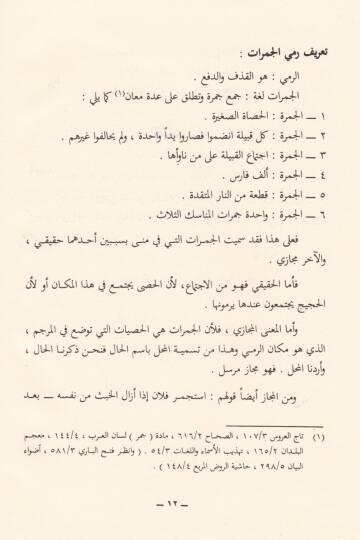 تعريف رمي الجمرات :
الرمي : هو القذف والدفع .
الجمرات لغة : جمع جمرة وتطلق على عدة معان(١) كما يلي :
١ ــ الجمرة : الحصاة الصغيرة .
٢ ــ الجمرة : كل قبيلة انضموا فصاروا يداً واحدة ، ولم يحالفوا غيرهم .
٣ ــ الجمرة : اجتماع القبيلة على من ناوأها .
٤ ــ الجمرة : ألف فارس .
٥ ــ الجمرة : قطعة من النار المتقدة .
٦ ــ الجمرة : واحدة جمرات المناسك الثلاث .
فعلى هذا فقد سميت الجمرات التي في منى بسببين أحدهما حقيقي ،
والآخر مجازي .
فأما الحقيقي فهو من الاجتماع، لأن الحصى يجتمع في هذا المكان أو لأن
الحجيج يجتمعون عندها يرمونها .
وأما المعنى المجازي ، فلأن الجمرات هي الحصيات التي توضع في المرجم ،
الذي هو مكان الرمي وهذا من تسمية المحل باسم الحال فنحن ذكرنا الحال ،
وأردنا المحل . فهو مجاز مرسل .
ومن المجاز أيضاً قولهم : استجمر فلان إذا أزال الخبث من نفسه ــ بعد
(١) تاج العروس ١٠٧/٣ ، الصحاح ٦١٦/٢ ، مادة ( جمر ) لسان العرب ، ١٤٤/٤ ، معجم
البلدان ١٦٥/٢ ، تهذيب الأسماء واللغات ٥٤/٣ . ( وانظر فتح الباري ٥٨١/٣ ، أضواء
البيان ٢٩٨/٥ ، حاشية الروض المربع ١٤٨/٤ ) .
ــ ١٢ ــ